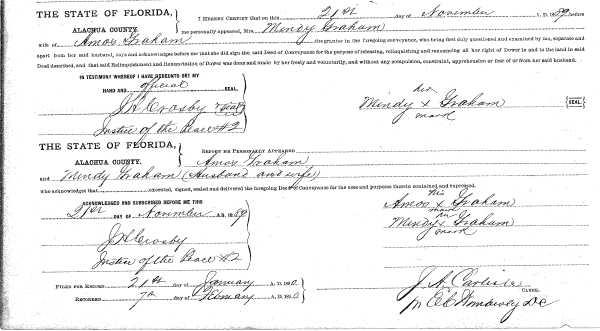 THE STATE OF FLORIDA,
ALACHUA COUNTY.
I HEREBY CERTIFY that on this 21st day of November A. D. 1889 before
me personally appeared, Mrs. Mindy Graham
wife of Amos Graham the grantor in the foregoing conveyance, who being first duly questioned and examined by me, separate and
apart from her said husband, upon said acknowledges before me that she did sign the said Deed of Conveyance for the purpose of releasing, relinquishing and renouncing all her right of Dower in and to the land in said
Deed described, and that said Relinquishment and Renunciation of Dower was done and made by her freely and voluntarily, and without any compulsion, constraint, apprehension or fear of or from her said husband.
IN TESTIMONY WHEREOF I HAVE HEREUNTO SET MY
HAND AND official SEAL.
J A Crosby seal
Justice of the Peace #2
her
Mindy x Graham SEAL
mark
THE STATE OF FLORIDA,
ALACHUA COUNTY.
BEFORE ME PERSONALLY APPEARED
Amos Graham,
and Mindy Graham (Husband and wife)
who acknowledges that executed, signed, sealed and delivered the foregoing Deed of Conveyance for the uses and purposes therein contained and expressed.
ACKNOWLEDGED AND SUBSCRIBED BEFORE ME THIS
21st DAY OF November A. D. 1889
J A Crosby
Justice of the Peace #2
His
Amos x Graham
mark
her
Mindy x Graham
mark
FILED FOR RECORD 21st day of January A. D. 1890
RECORDED 7th day of February A. D. 1890
J. A. Carlisle
CLERK.
DC